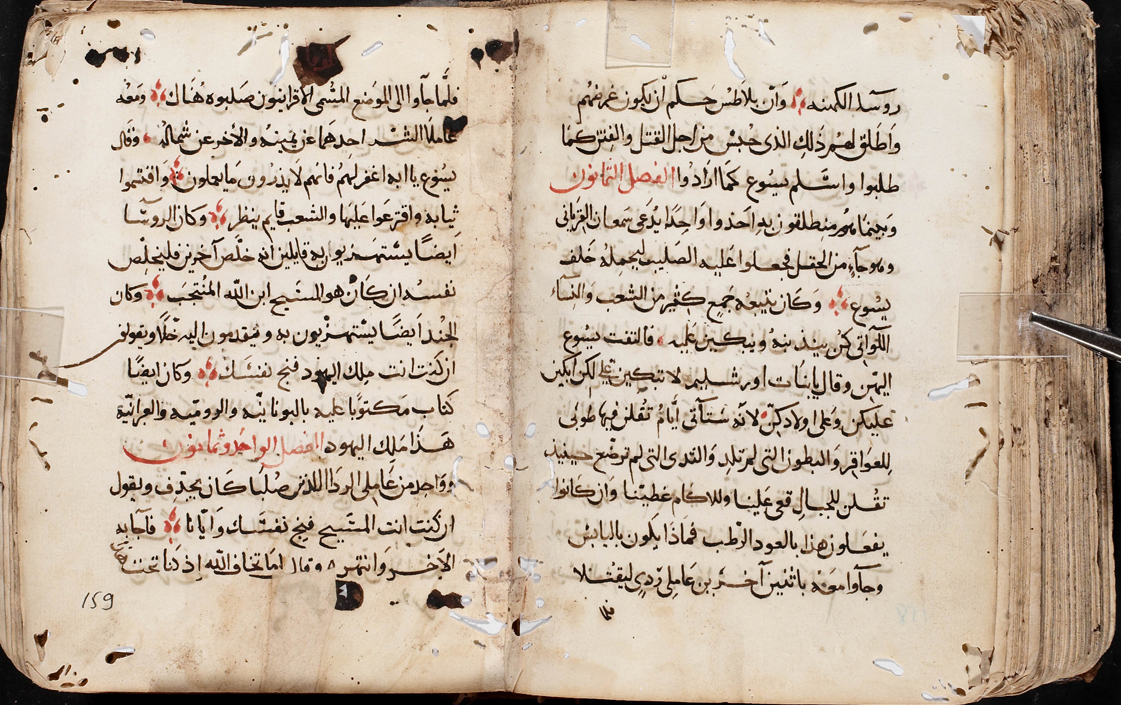 روسآ الكهنه وان بلاطس حكم ان يكون غرضهم
واطلق لهم ذلك الذى حبس من اجل القتل والفتن كما
طلبوا واسلم يسوع كما ارادوا الفصل الثمانون
وبينما هم منطلقون به اخذوا واحدا يدعى سمعان القرياني
وهو جآء من الحقل فجعلوا عليه الصليب ليحمله خلف
يسوع وكان يتبعه جمع كثير من الشعب والنسآء
اللواتى كن يندبنه ويبكين عليه فالتفت يسوع
اليهن وقال يا بنات اورشليم لا تبكين على لكن ابكين
عليكن وعلى اولادكن لانه ستأتى ايام تقلن فيها طوبى
للعواقر والبطون التى لم تلد والثدى التى لم ترضع حينيذ
تقلن للجبال قعى علينا وللاكام غطينا وان كانوا
يفعلون هذا بالعود الرطب فماذا يكون باليابس
وجآوا معه باثنين آخرين عاملى ردى ليقتلا
فلما
فلما جآوا الى الموضع المسمى الاقرانيون صلبوه هناك ومعه
عاملا الشر احدهما عن يمينه والاخر عن شماله وقال
يسوع يا ابه اغفر لهم فانهم لا يدرون ما يعملون واقتسموا
ثيابه واقترعوا عليها والشعب قايم ينظر وكان الروسا
ايضا يستهزيون به قايلين انه خلص آخرين فليخلص
نفسه ان كان هو المسيح ابن الله المنتجب وكان
الجند ايضا يستهزيون به ويتقدمون اليه خلا ويقولو
ان كنت انت ملك اليهود فنج نفسك وكان ايضا
كتاب مكتوبا عليه باليونانيه والروميه والعبرانية
هذا ملك اليهود الفصل الواحد وثمانون
وواحد من عاملى الردا اللذين صلبا كان يجدف ويقول
ان كنت انت المسيح فنج نفسك وايانا فاجابه
الاخر وانتهره وقال اما تخاف الله اذ نحن تحت
159